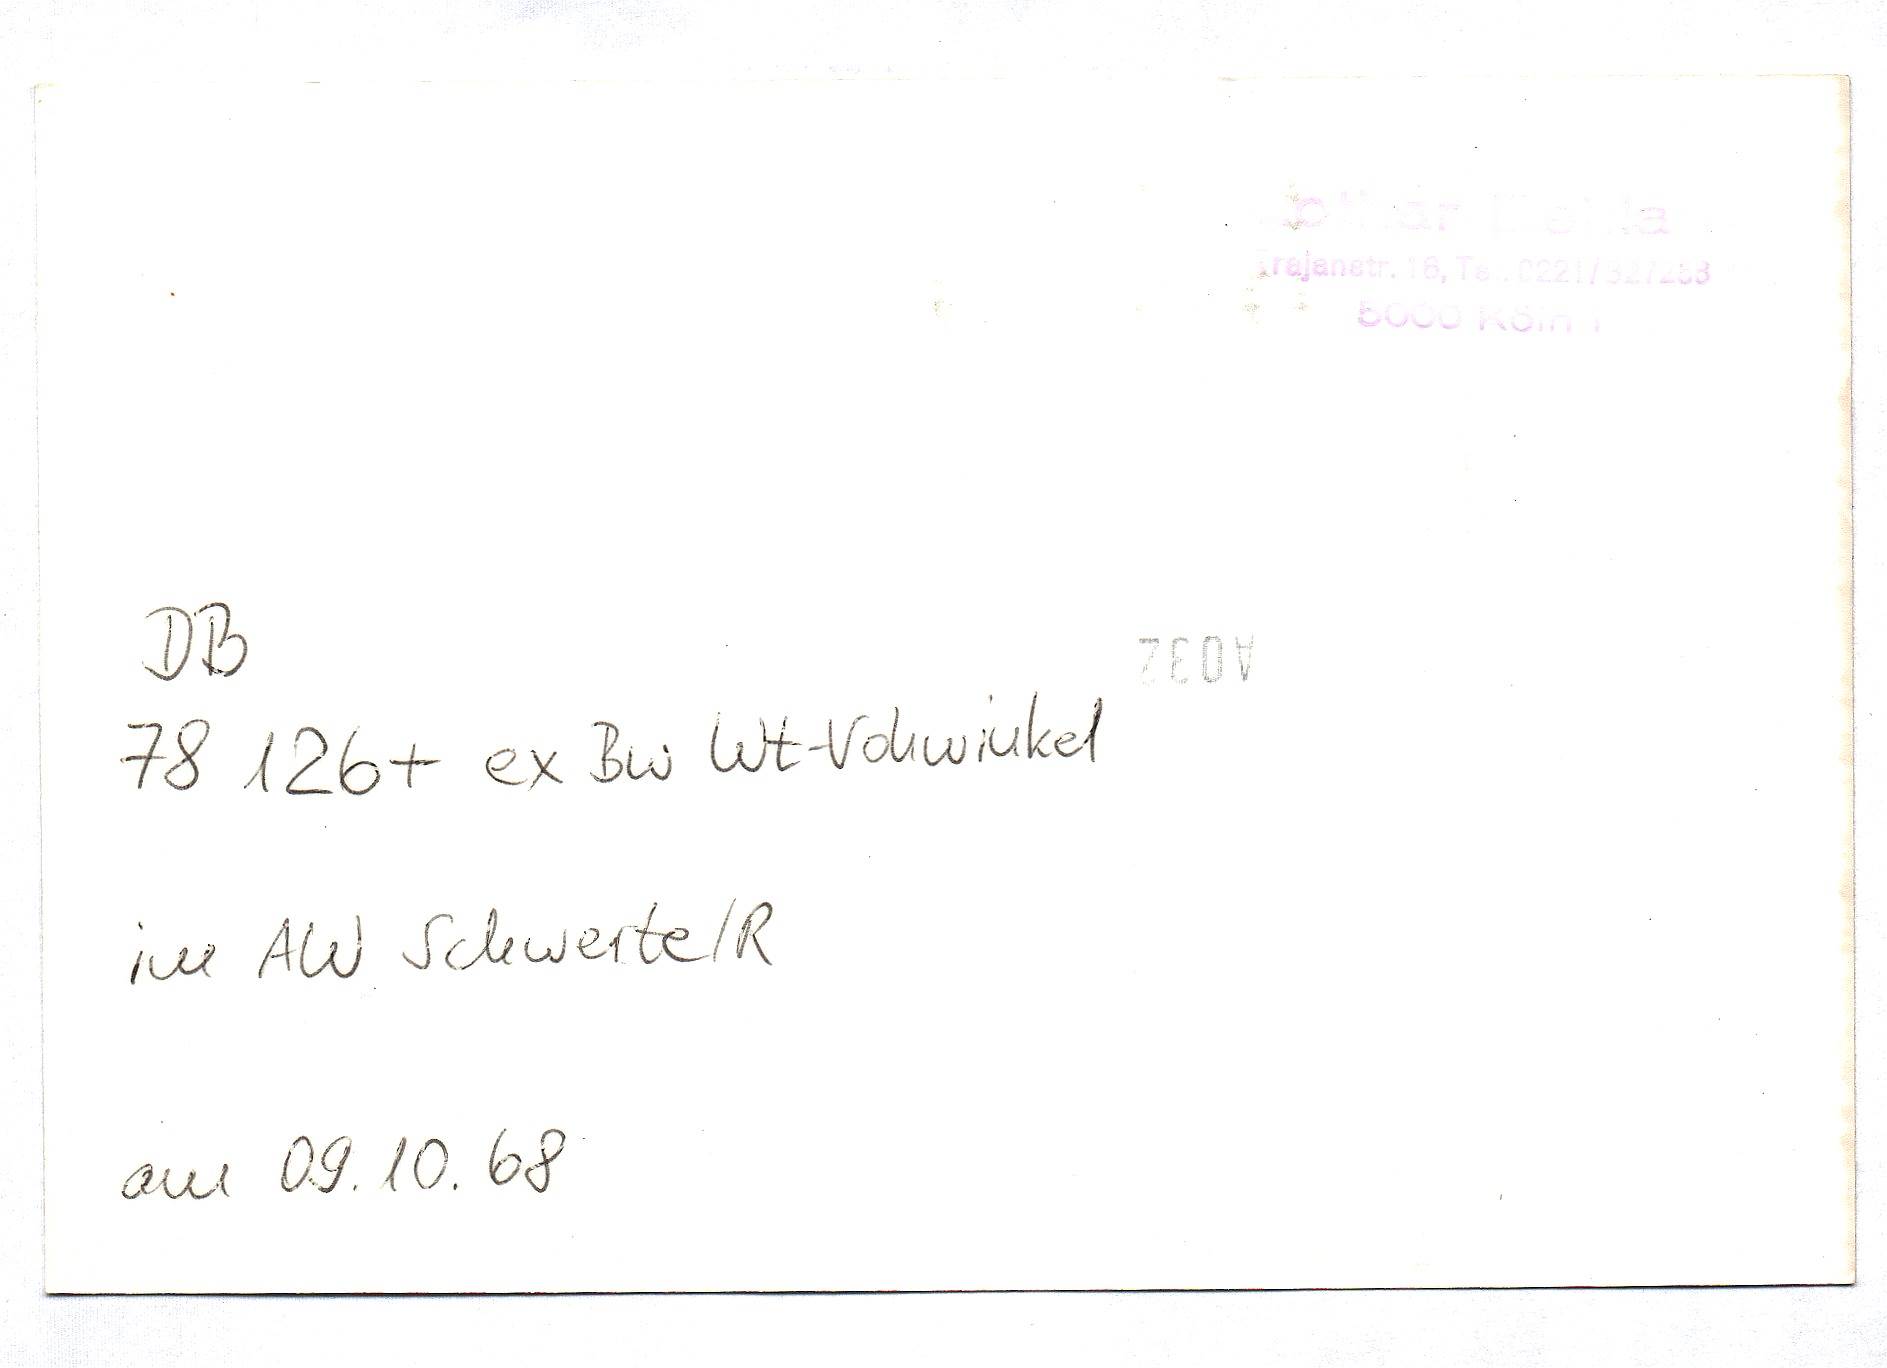 Trajanstr. 16, Tel. 0221/
5000 Köln 1
DB
A032
78 126+ ex Bw Wt-Vohwinkel
im AW Schwerte/R
am 09.10.68